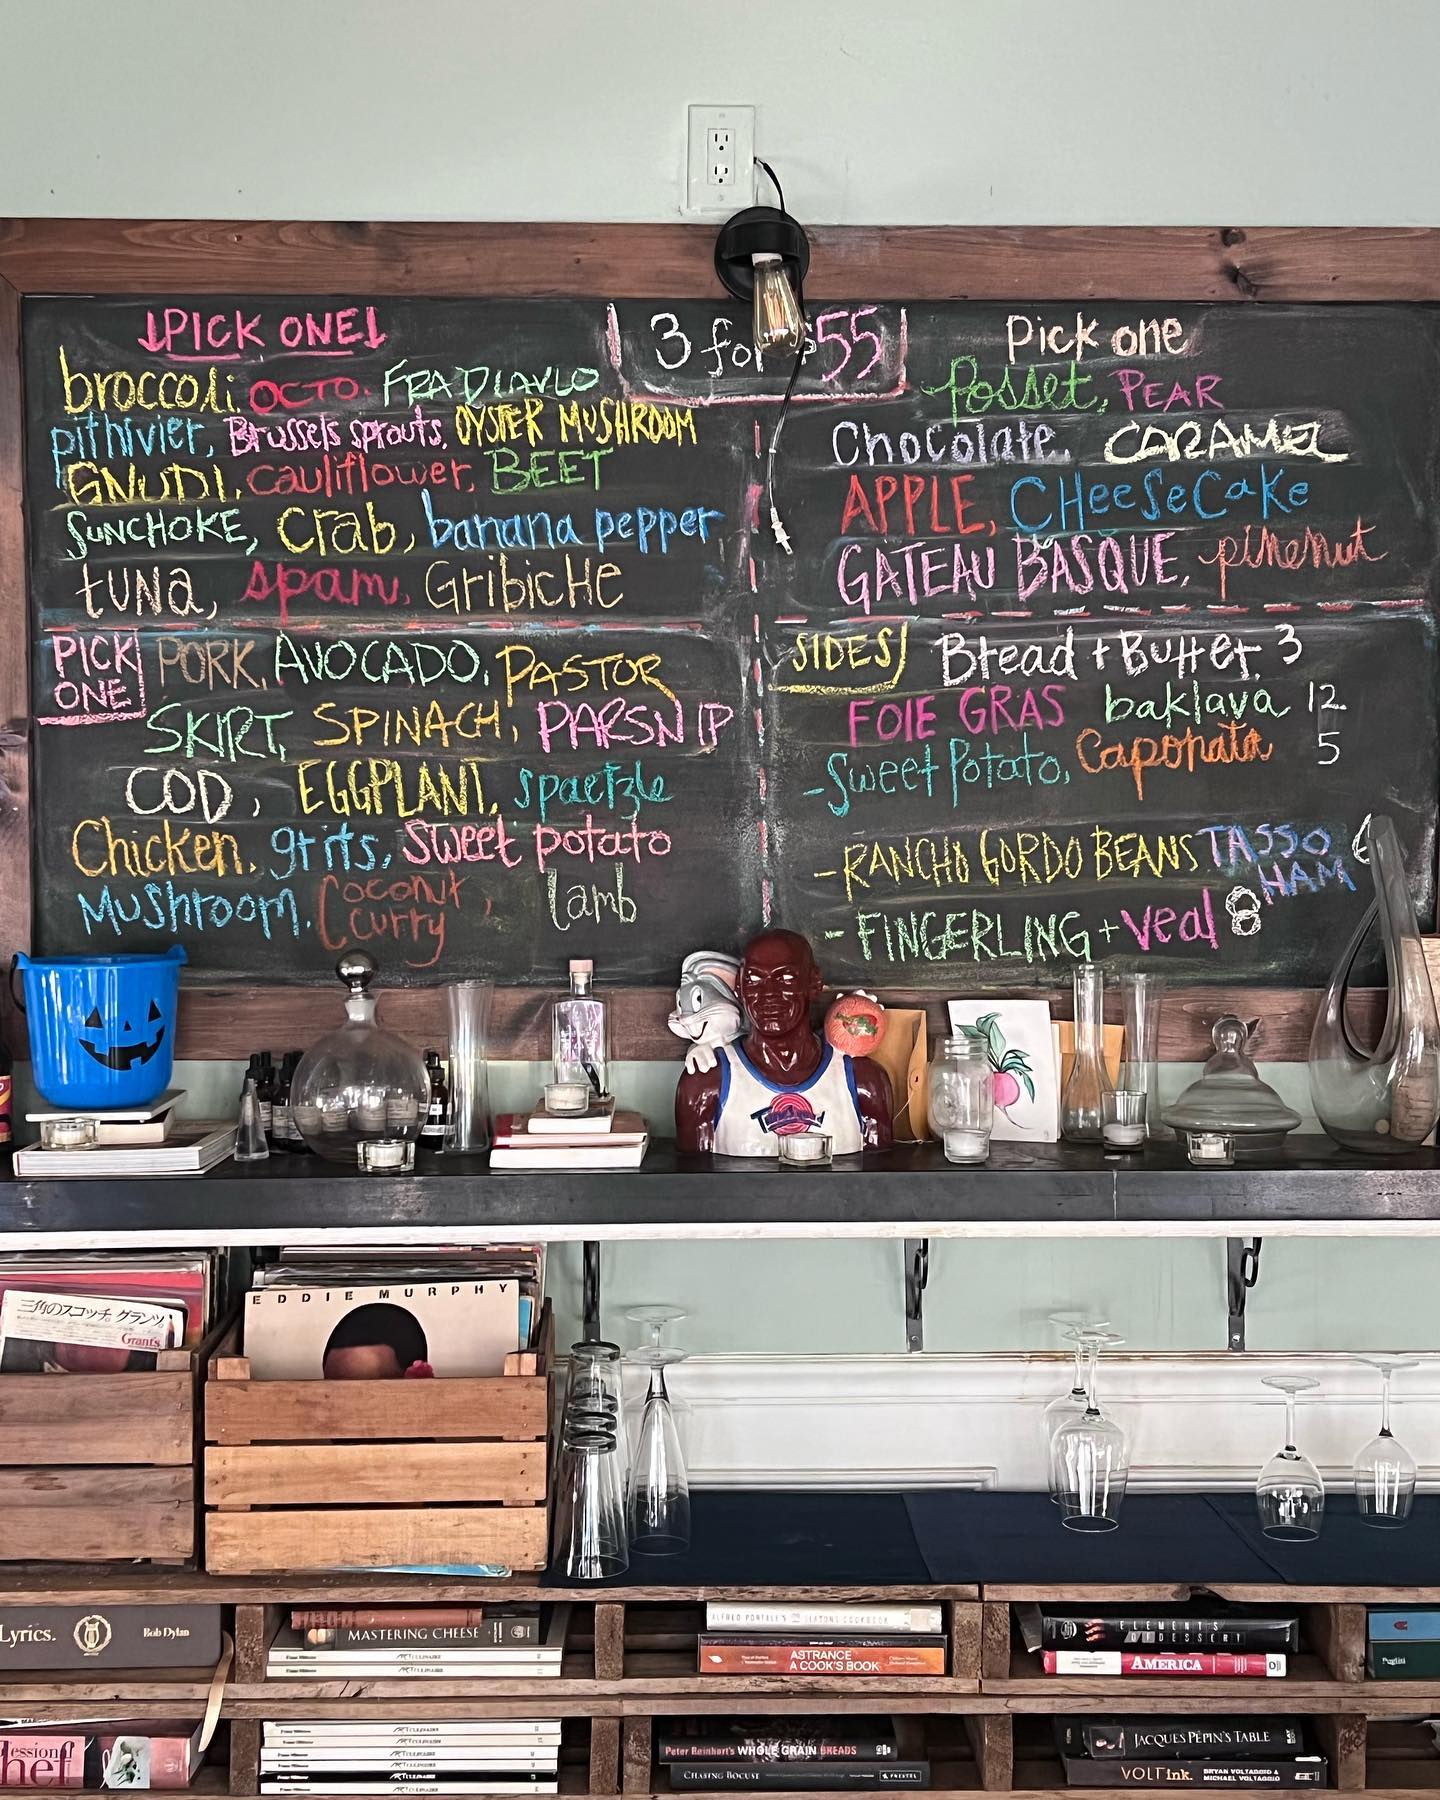 PICK ONE
broccoli, OCTO, FRA DIAVLO
pithivier, Brussels sprouts, OYSTER MUSHROOM
GNUDI, cauliflower, BEET
SUNCHOKE, crab, banana pepper
tuna, spam, GribicHe
3 for $55
Pick one
Posset, PEAR
Chocolate, CARAMEL
APPLE, CHeeSeCaKe
GATEAU BASQUE, pinenut
PICK ONE
PORK, AVOCADO, PASTOR
SKIRT, SPINACH, PARSNIP
COD, EGGPLANT, spaetzle
Chicken, grits, sweet potato
Mushroom, Coconut curry, lamb
SIDES
Bread + Butter 3
FOIE GRAS baklava 12
- Sweet Potato, Caponata 5
- RANCHO GORDO BEANS TASSO HAM 6
- FINGERLING + veal 8
三角のスコッチ。グランツ。
Grant's
EDDIE MURPHY
Lyrics. Bob Dylan
MASTERING CHEESE
ART CULINAIRE
ART CULINAIRE
ALFRED PORTALE'S
COOKBOOK
ASTRANCE
A COOK'S BOOK
ELEMENTS
OF DESSERT
AMERICA
Puglisi
ART CULINAIRE
ART CULINAIRE
ART CULINAIRE
ART CULINAIRE
ART CULINAIRE
Peter Reinhart's WHOLE GRAIN BREADS
CHASING BOCUSE
JACQUES PÉPIN'S TABLE
VOLT ink. BRYAN VOLTAGGIO &
MICHAEL VOLTAGGIO